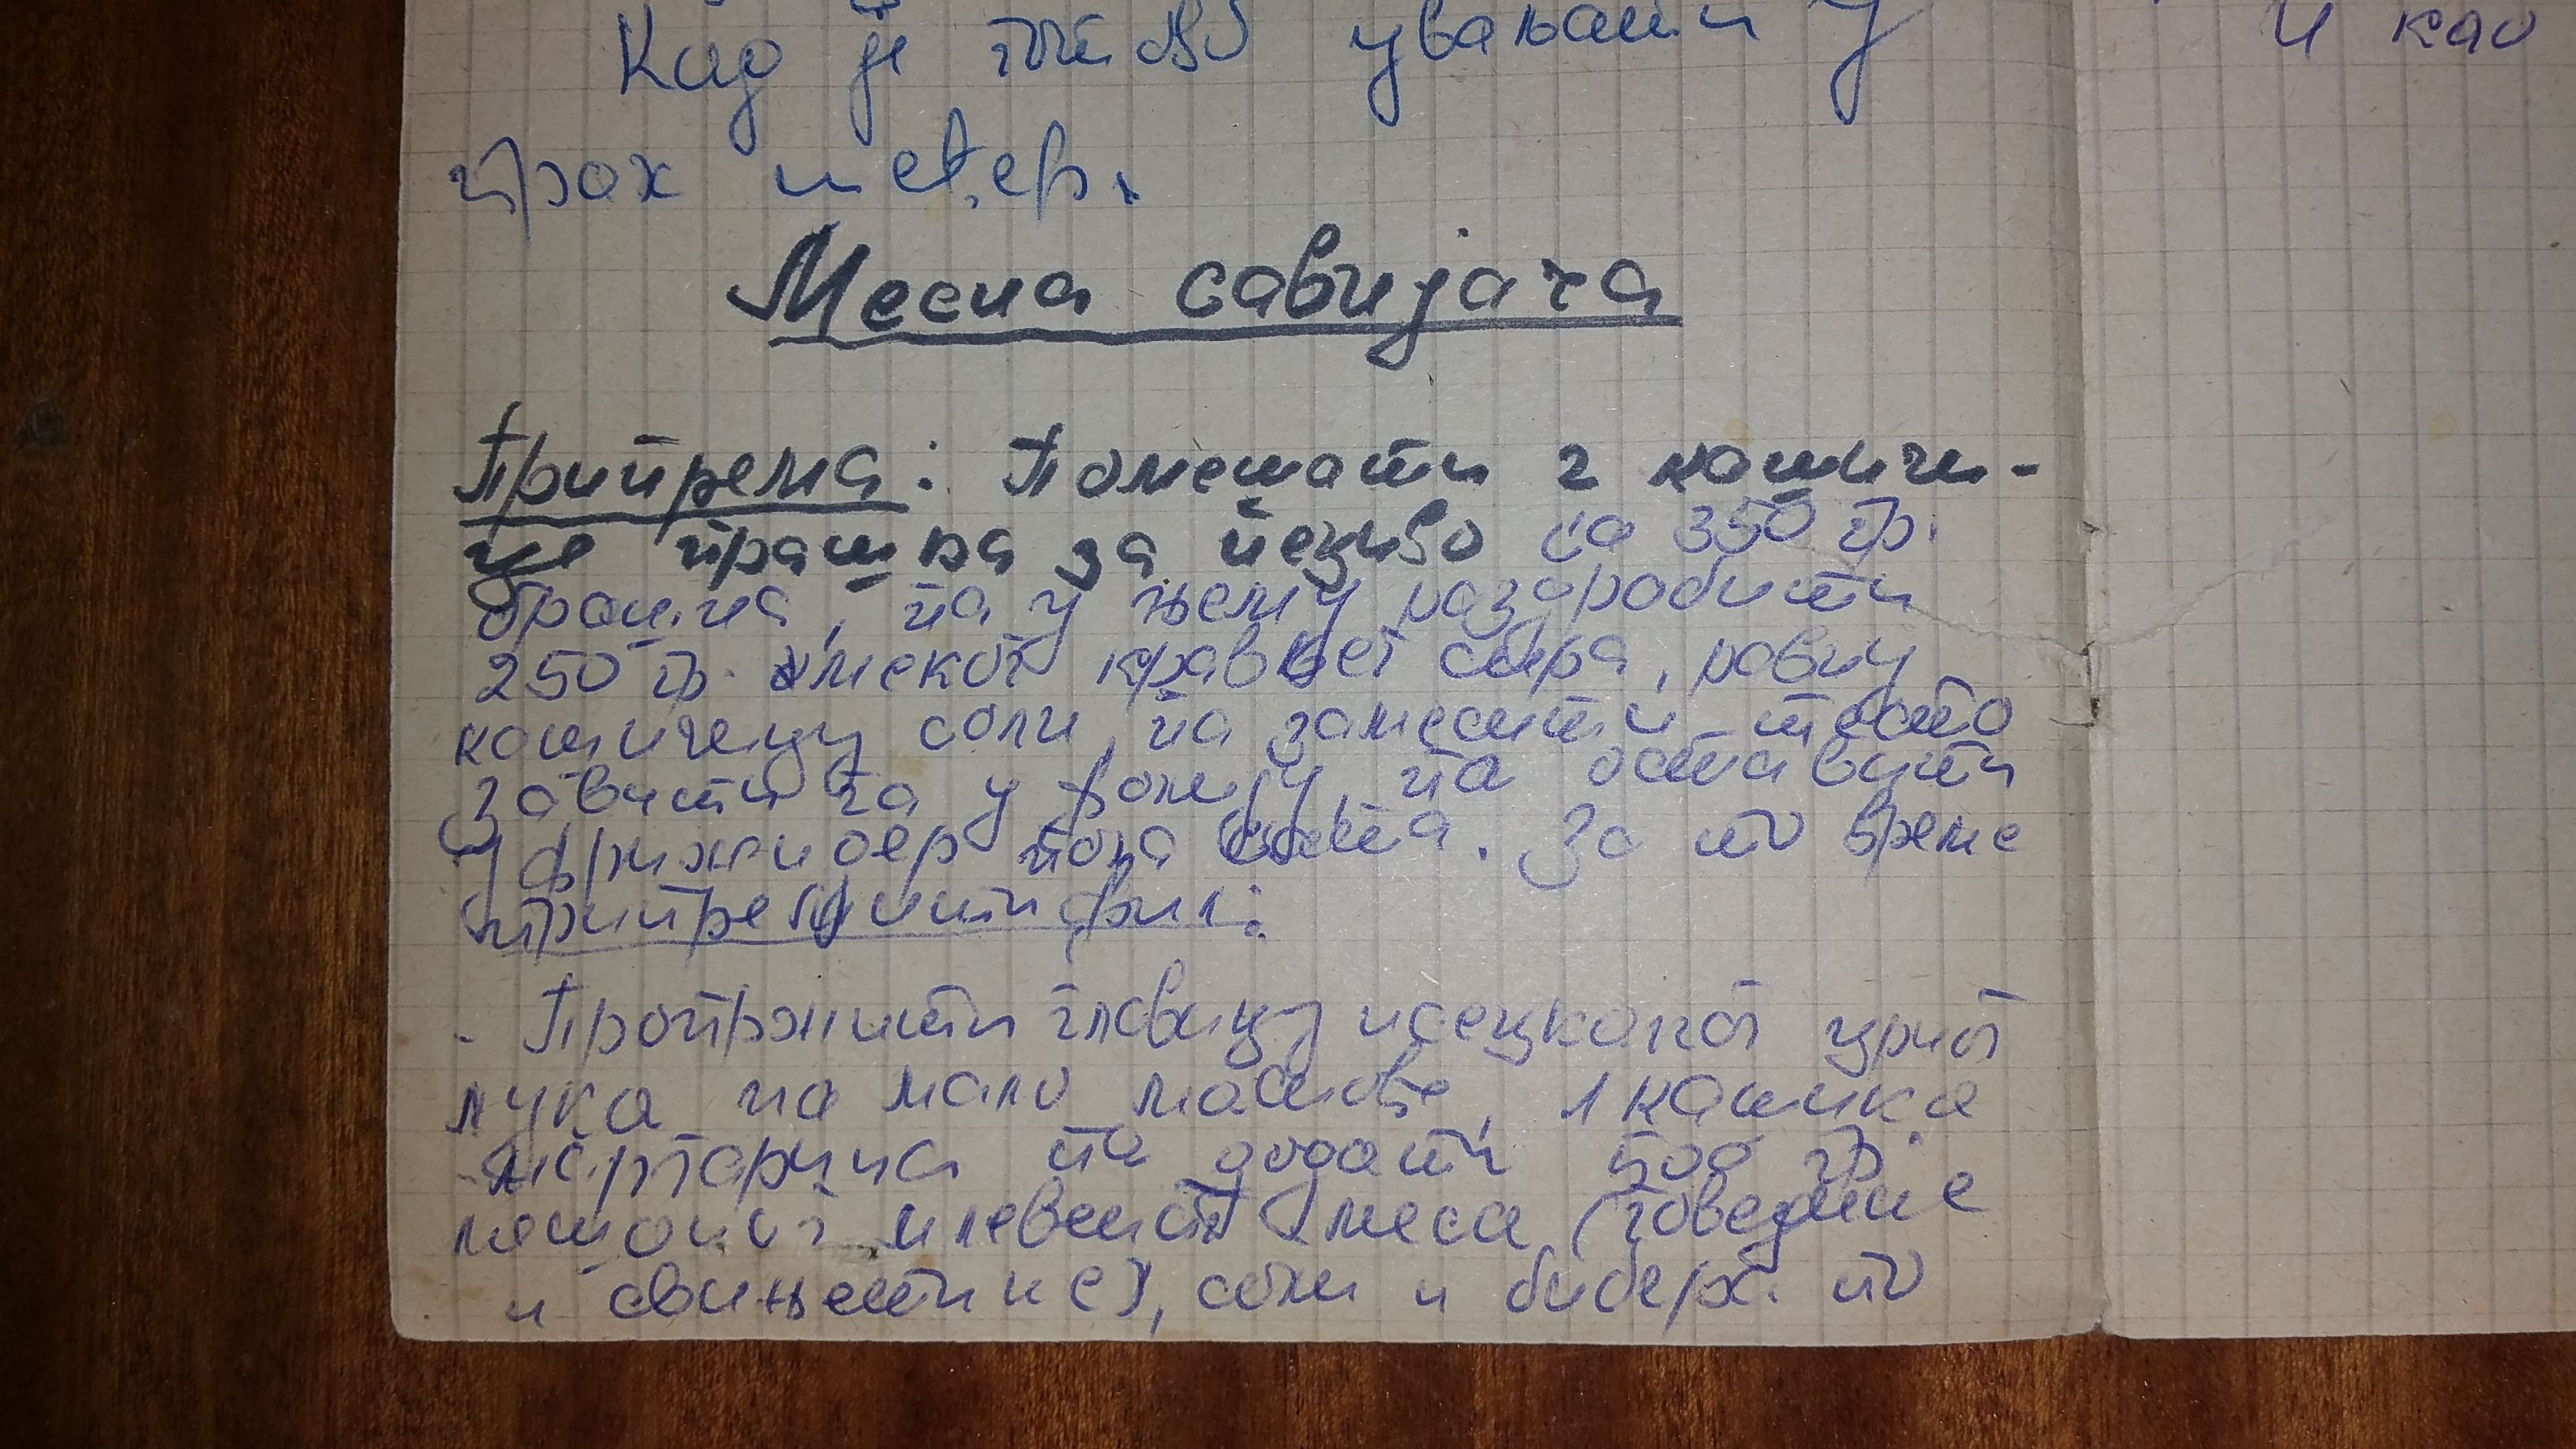 Кад је тово уваљати у
прах шећер.
и као
Месна савијача
Припрема: Помешати 2 кашичи-
це прашка за пециво са 350 гр.
брашна, па у њему раздробити
250 гр. меког крављег сира, равну
кашичицу соли, па замесити тесто
Завити га у фолију, па оставити
у фрижидер пола сата. За то време
припремити фил:
- Пропржити главицу исецканог црног
лука на мало масти, 1 кашика
маргарина па додати 500 гр.
мешаног млевеног меса (говедине
и свињетине), соли и бибера по